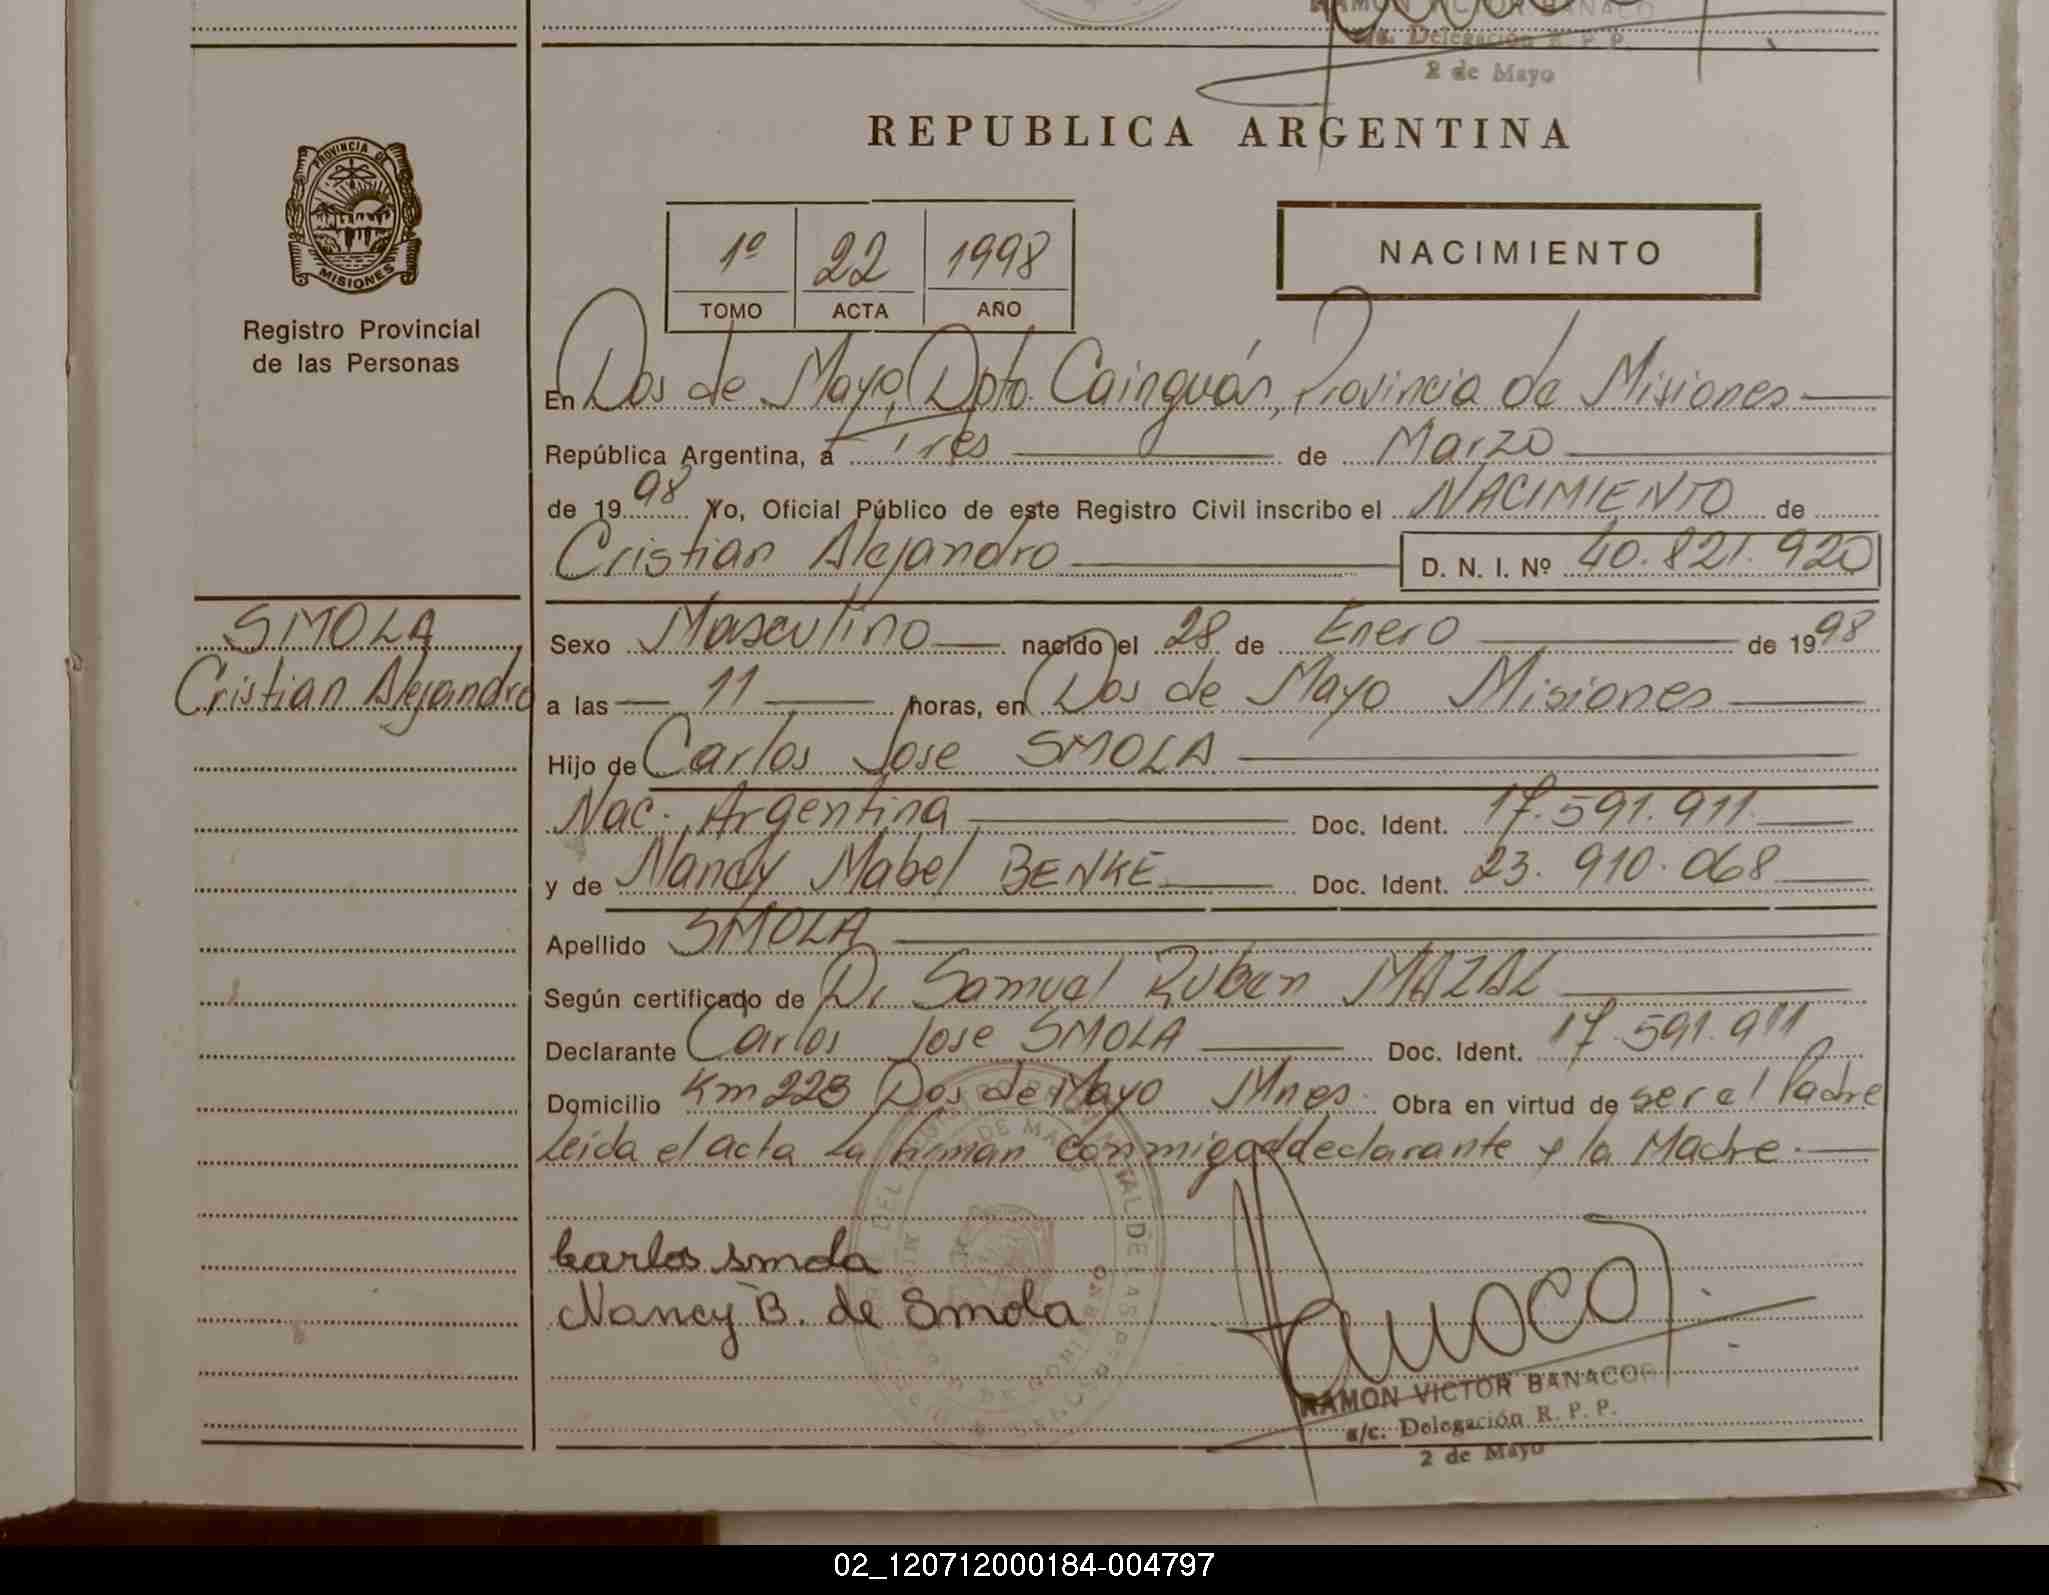 RAMON VICTOR BANACO
a/c. Delegación R. P. P.
2 de Mayo
PROVINCIA DE
MISIONES
Registro Provincial
de las Personas
REPUBLICA ARGENTINA
1º 22 1998
TOMO ACTA AÑO
NACIMIENTO
En Dos de Mayo, Dpto. Cainguás, Provincia de Misiones
República Argentina, a Tres de Marzo
de 1998 Yo, Oficial Público de este Registro Civil inscribo el NACIMIENTO de
Cristian Alejandro D. N. I. Nº 40.821.920
SMOLA
Cristian Alejandro
Sexo Masculino nacido el 28 de Enero de 1998
a las 11 horas, en Dos de Mayo Misiones
Hijo de Carlos Jose SMOLA
Nac. Argentina Doc. Ident. 17.591.911
y de Nancy Mabel BENKE Doc. Ident. 23.910.068
Apellido SMOLA
Según certificado de Dr Samuel Ruben MAZAL
Declarante Carlos Jose SMOLA Doc. Ident. 17.591.911
Domicilio Km 223 Dos de Mayo Mnes. Obra en virtud de ser el Padre
Leida el acta la firman conmigo el declarante y la Madre.
Carlos Smola
Nancy B. de Smola
RAMON VICTOR BANACOR
a/c. Delegación R. P. P.
2 de Mayo
02_120712000184-004797